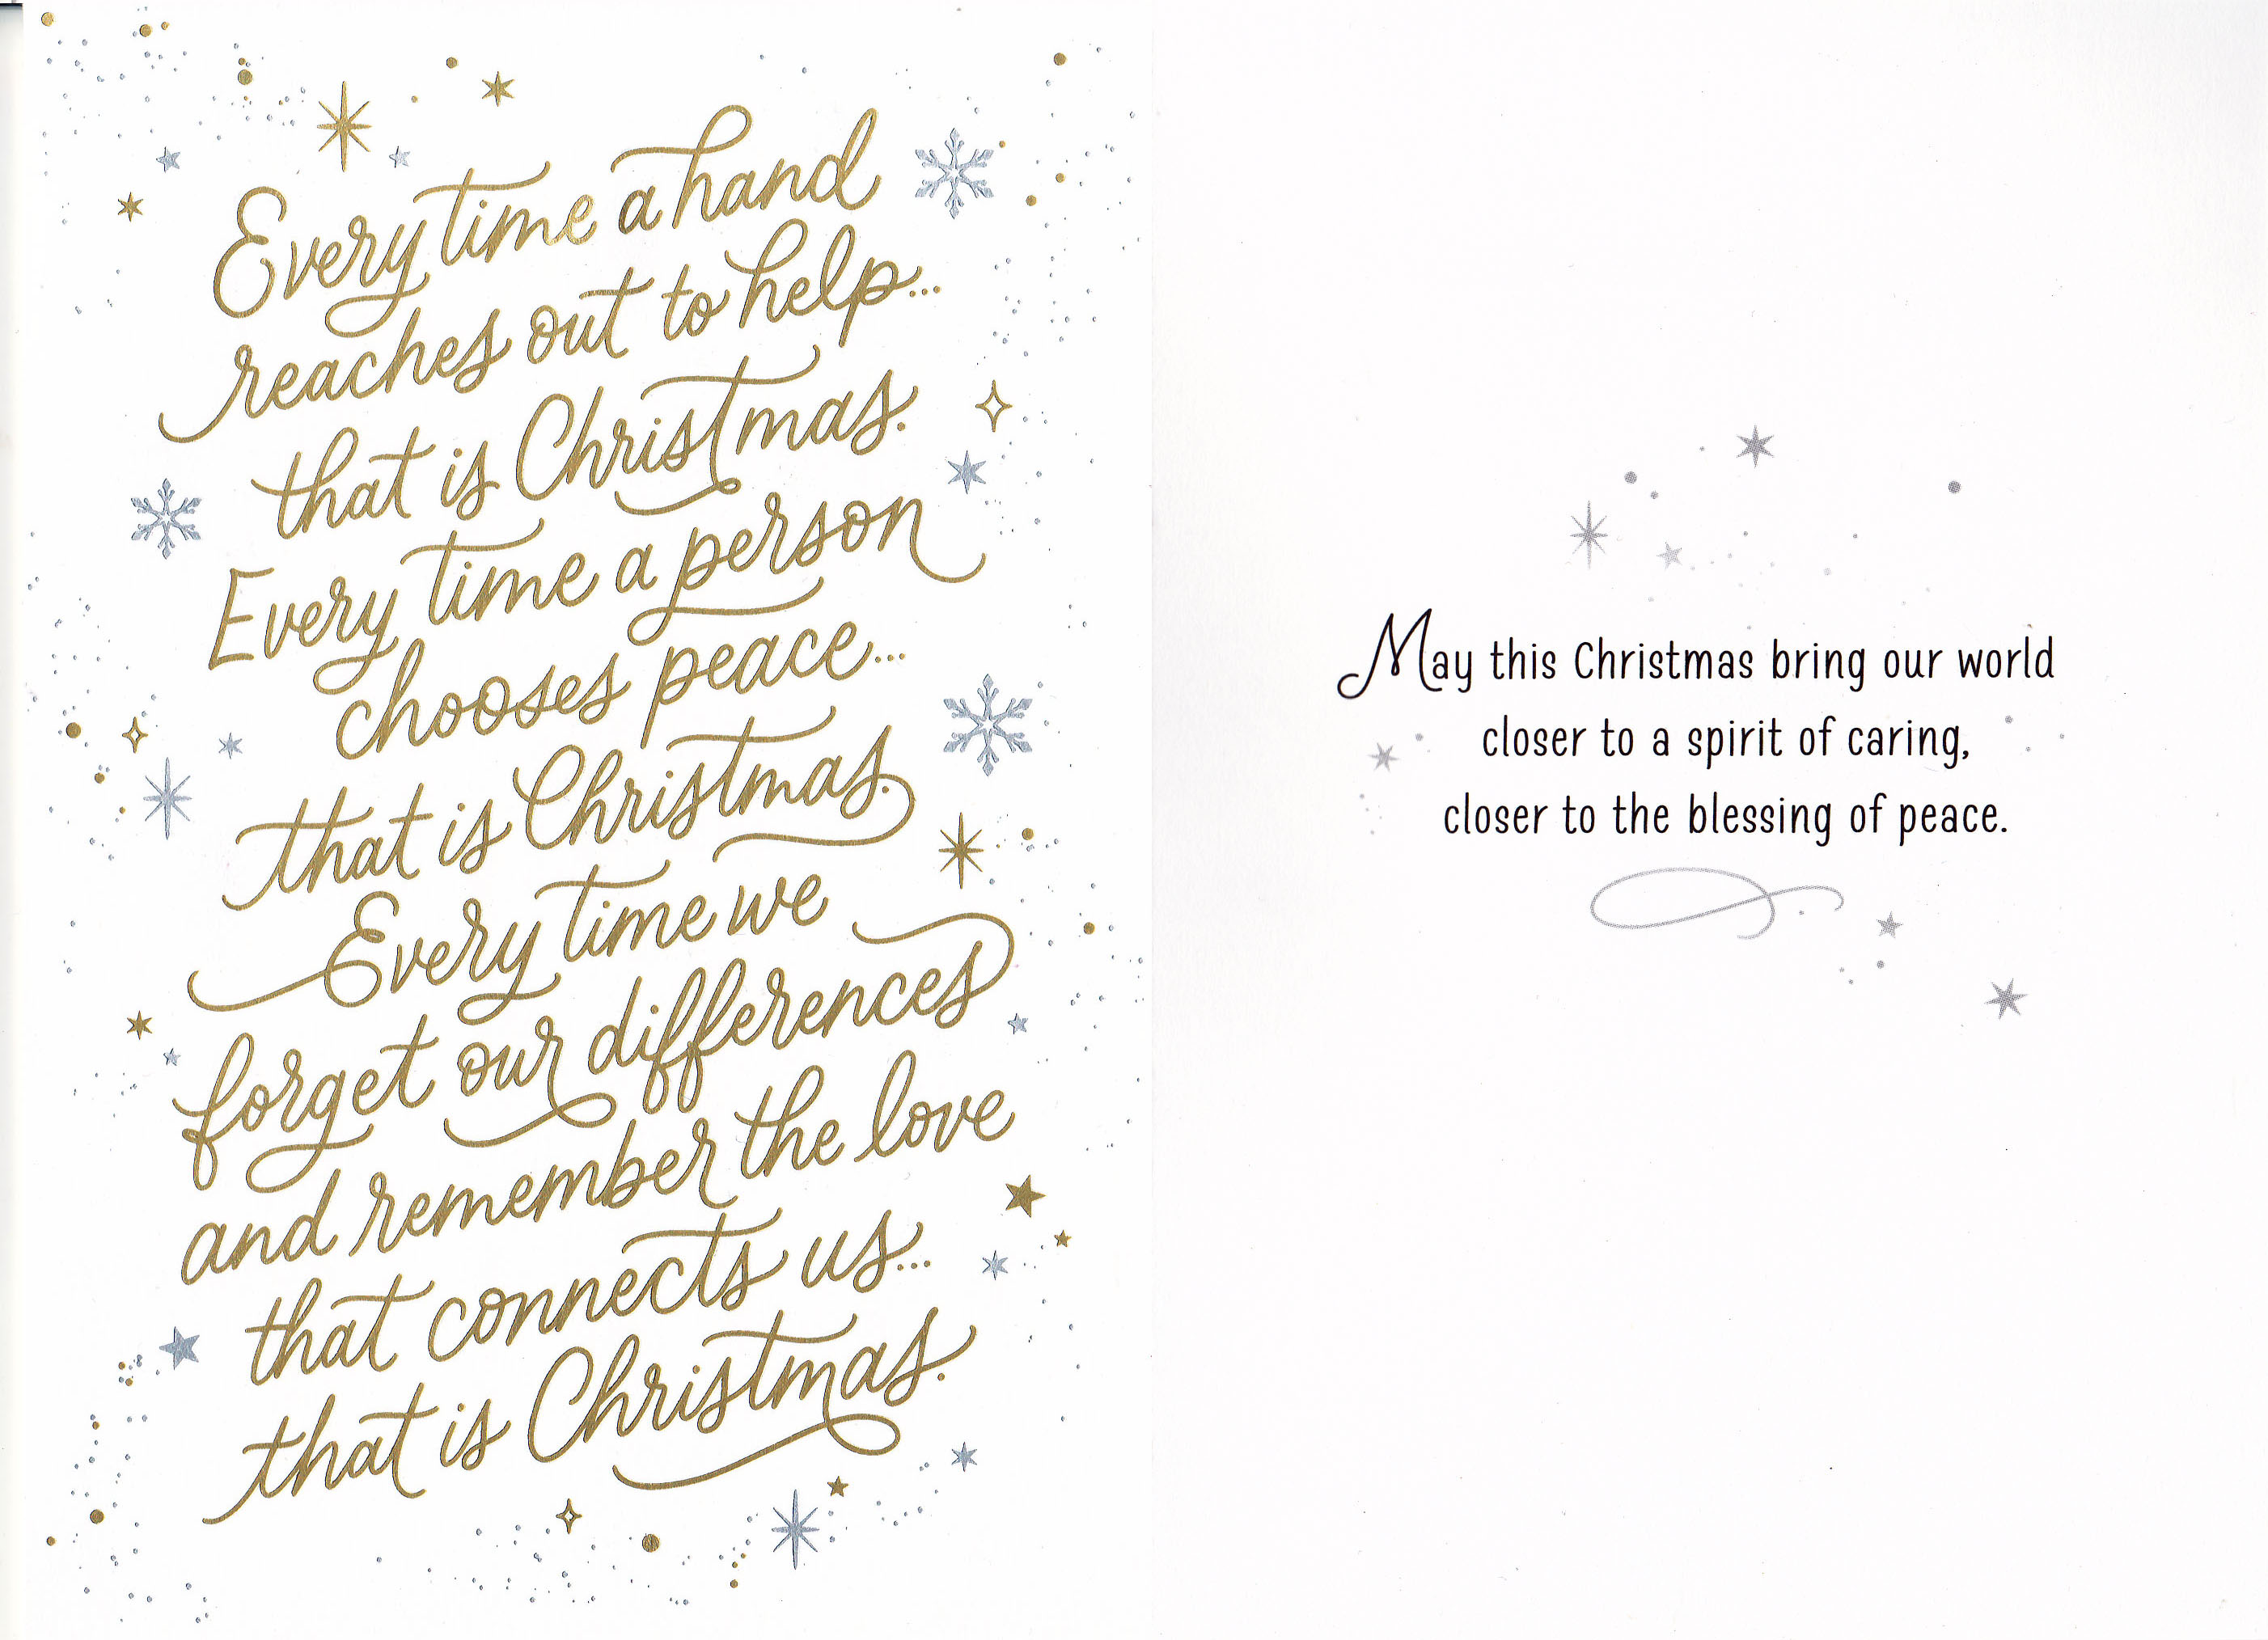 Every time a hand
reaches out to help...
that is Christmas.
Every time a person
chooses peace...
that is Christmas.
Every time we
forget our differences
and remember the love
that connects us...
that is Christmas.
May this Christmas bring our world
closer to a spirit of caring,
closer to the blessing of peace.